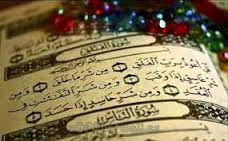 سُورَةُ الْفَلَقِ
قُلْ أَعُوذُ بِرَبِّ الْفَلَقِ مِن شَرِّ مَا خَلَقَ وَمِن
شَرِّ غَاسِقٍ إِذَا وَقَبَ وَمِن شَرِّ النَّفَّٰثَٰتِ فِي
الْعُقَدِ وَمِن شَرِّ حَاسِدٍ إِذَا حَسَدَ
سُورَةُ النَّاسِ